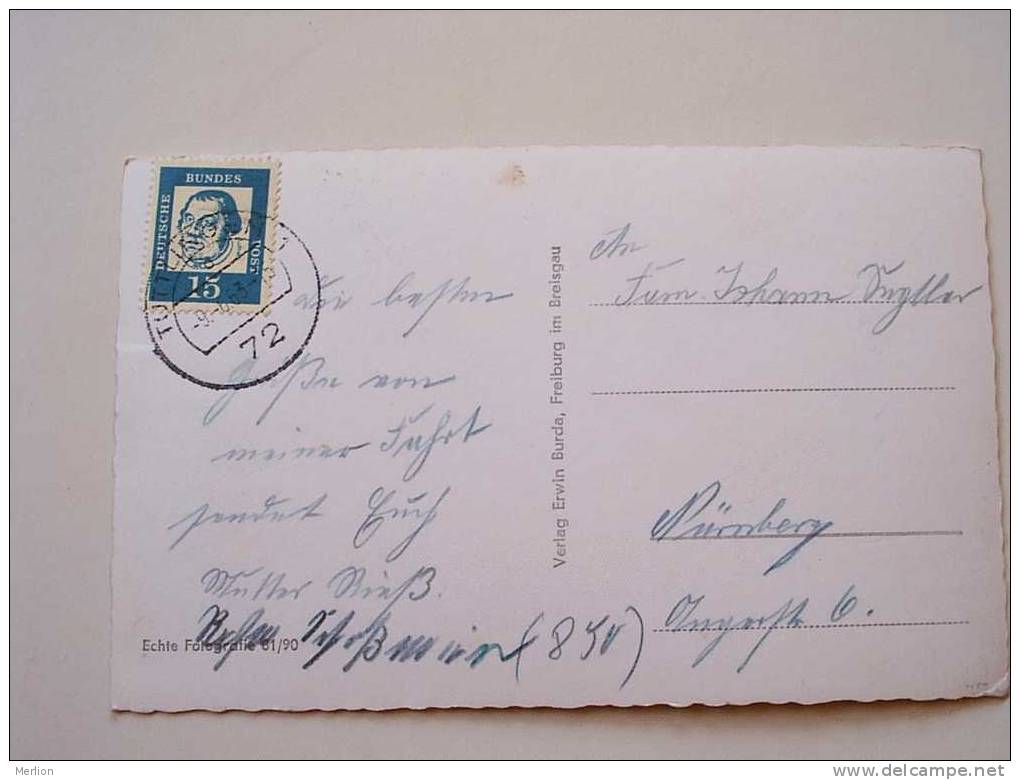 DEUTSCHE
BUNDES
POST
15
TUTTLINGEN
72
die besten
Grüße von
meiner Fahrt
sendet Euch
Mutter Rieß.
(850)
Echte Fotografie 61/90
Verlag Erwin Burda, Freiburg im Breisgau
An
Fam. Johann
Nürnberg
6.
Merlion
delcampe.net